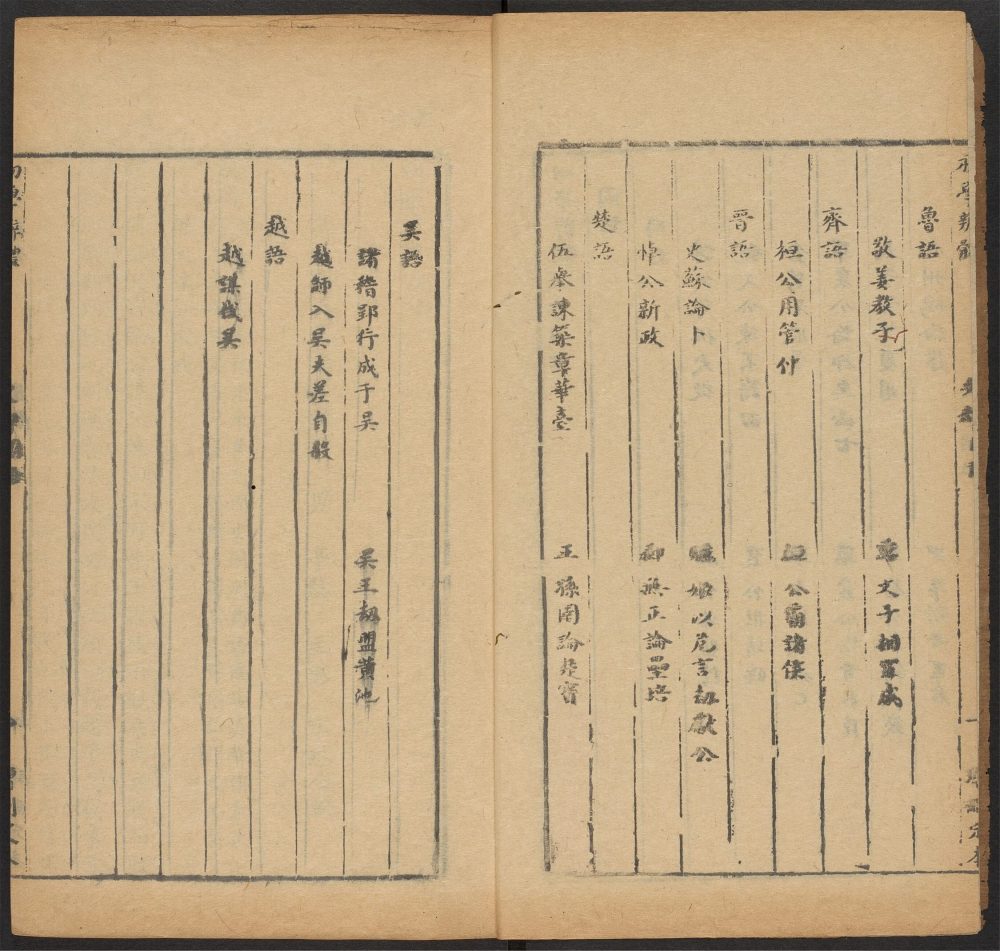 魯語
敬姜教子 季文子相宣成
齊語
桓公用管仲 桓公霸諸侯
晋語
史蘇論卜 驪姬以危言劫獻公
悼公新政 郵無正論壘培
楚語
伍舉諫築章華臺 王孫圉論楚寶
吴語
諸稽郢行成于吴 吴王劫盟黄池
越師入吴夫差自殺
越語
越謀伐吴